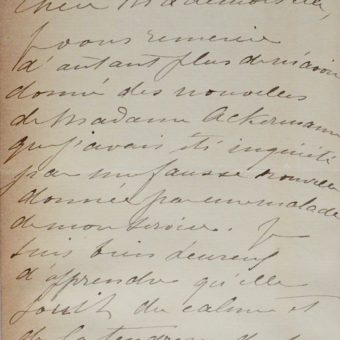 Chère Mademoiselle,
Je vous remercie
d'autant plus de m'avoir
donné des nouvelles
de Madame Ackermann
que j'avais été inquiété
par une fausse nouvelle
donnée par une malade
de mon service. Je
suis bien heureux
d'apprendre qu'elle
jouit du calme et
de la tendresse de